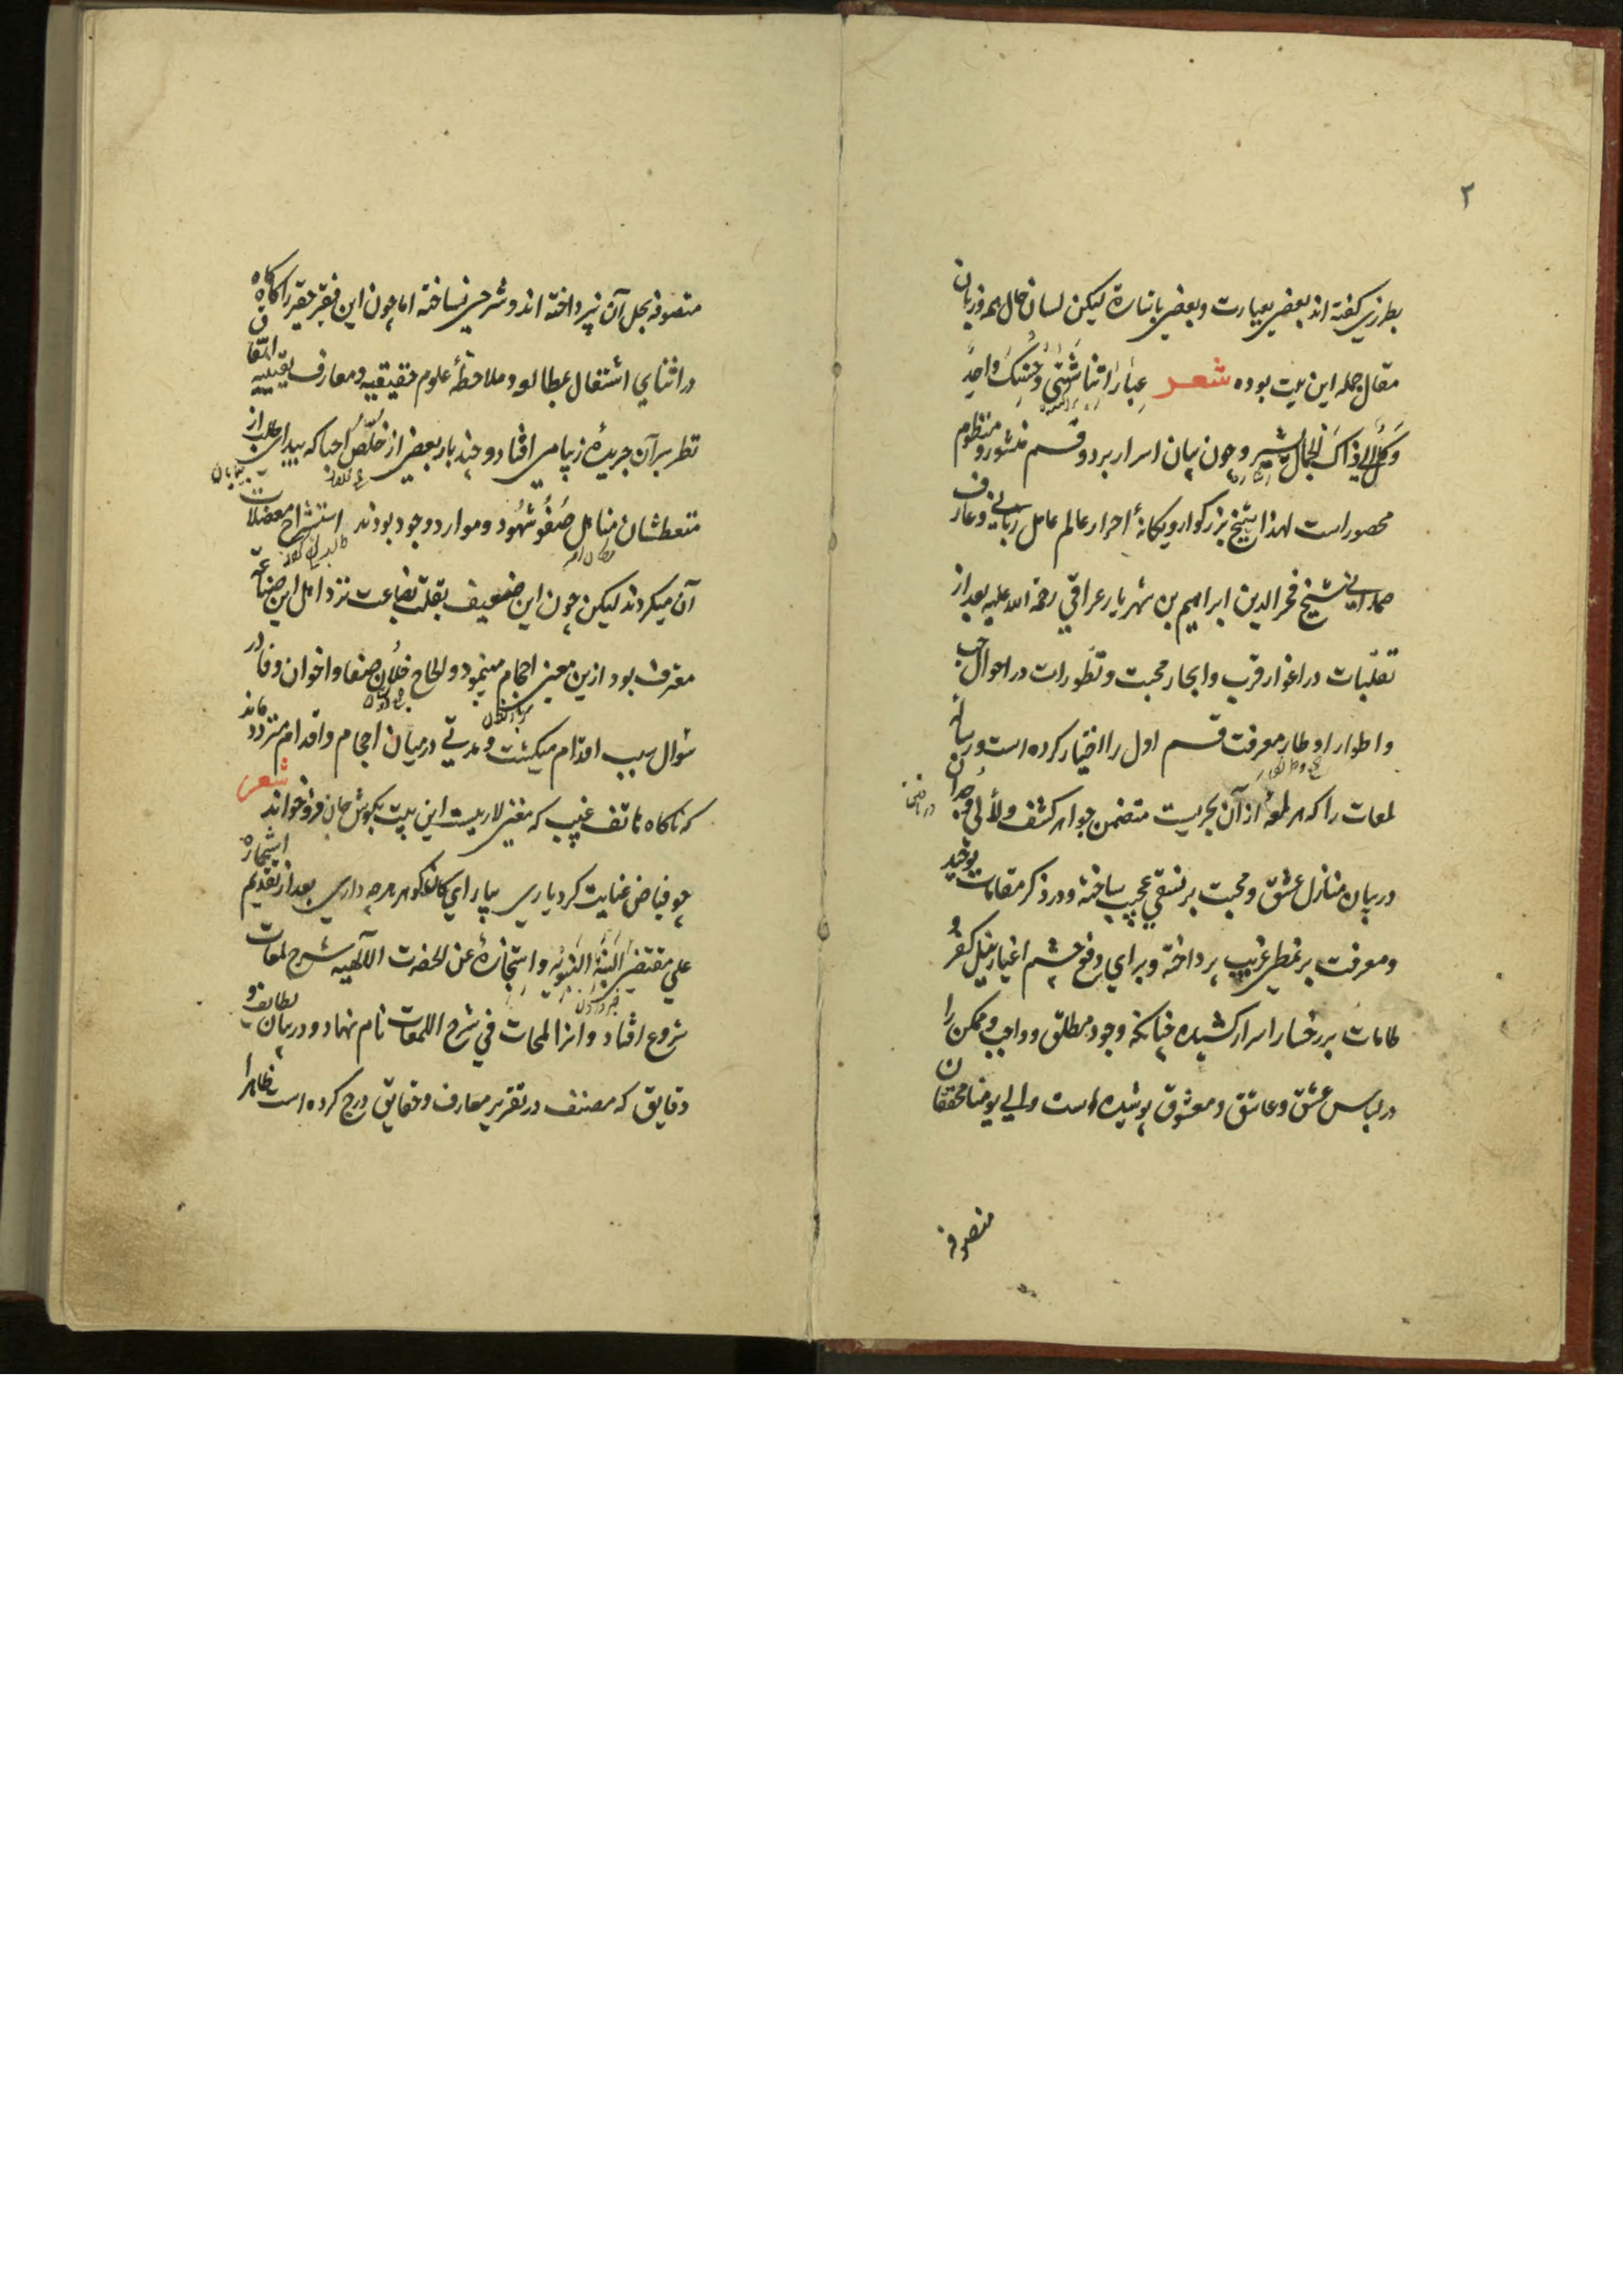 ۲
بطرزی گفته اند بعضی بعبارت و بعضی باشارة لیکن لسان حال همه و زبان
مقال جمله این بیت بوده شعر عِبَارَاتُنا شَتّٰی وَحُسْنُكَ وَاحِدٌ
وَكُلٌّ اِلٰی ذَاكَ الْجَمَالِ یُشیر و چون بیان اسرار بر دو قسم منثور و منظوم
محصور است لهذا شیخ بزرکوار و یکانهٔ احرار عالم عامل ربانی و عارف
صمدانی شیخ فخر الدین ابراهیم بن شهریار عراقی رحمة الله علیه بعد از
تقلّبات در اغوار قرب و ابحار محبت و تطورات در احوال حب
و اطوار اوطار معرفت قسم اول را اختیار کرده است و رسالهٔ
لمعات را که هر لمعهٔ از آن بحریست متضمن جواهر کشف و لألی وجدان
در بیان منازل عشق و محبت بر نسقی عجیب ساخته و در ذکر مقامات توحید
و معرفت بر نمطی غریب پرداخته و برای دفع چشم اغیار نیل کفر و
طامات بر رخسار اسرار کشیده چنانکه وجود مطلق و واجب و ممکن را
در لباس عشق و عاشق و معشوق پوشیده است و الی یومنا محققان
متصوفه
متصوفه بحل آن نپرداخته اند و شرحی نساخته اما چون این فقیر حقیر را کاه کاه
در اثنای اشتغال بمطالعه و ملاحظهٔ علوم حقیقیه و معارف یقینیه اتفاق
نظر بر آن جریدهٔ زیبا می افتاد و چند بار بعضی از خُلّصِ احبا که بیدای طلب از
متعطشان مناهل صَفْو شُهُود و موارد وجود بودند استشراح معضلات
آن میکردند لیکن چون این ضعیف بقلت بضاعت نزد اهل این صناعة
معترف بود ازین معنی احجام مینمود و الحاح خُلّان صفا و اخوان وفا در
سؤال سبب اقدام میکشت و مدتی در میان احجام و اقدام متردد ماند
که ناکاه هاتف غیب که مغنی لاریبست این بیت بکوش جان فرو خواند شعر
چو فیاض عنایت کرد یاری بیار ای کان کوهر هرچه داری بعد از تقدیم استخاره
علی مقتضی السُنَّة النَبَویّه و استجازةٔ عن الحضرت الالٓهیه شرح لمعات
شروع افتاد و انرا لمحات فی شرح اللمعات نام نهاد و در بیان لطائف و
دقایق که مصنف در تقریر معارف و حقایق درج کرده است ظاهرا